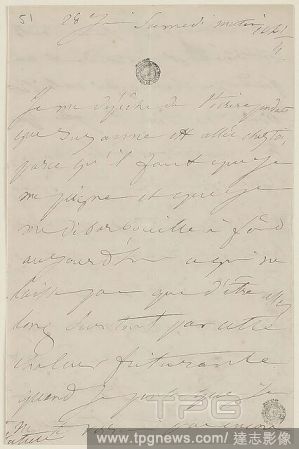 51
Samedi matin
Je me dépêche de t'écrire pendant
que Suzanne est allée chez toi,
parce qu'il faut que je
me peigne et que je
me débarbouille à fond
aujourd'hui ce qui ne
laisse pas que d'être assez
long surtout par cette
chaleur
quand je
TPG
www.tpgnews.com/達志影像